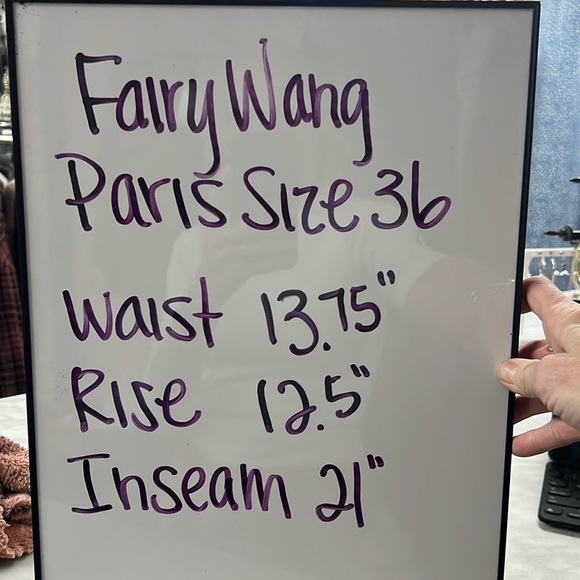 Fairy Wang
Paris Size 36
Waist 13.75"
Rise 12.5"
Inseam 21"